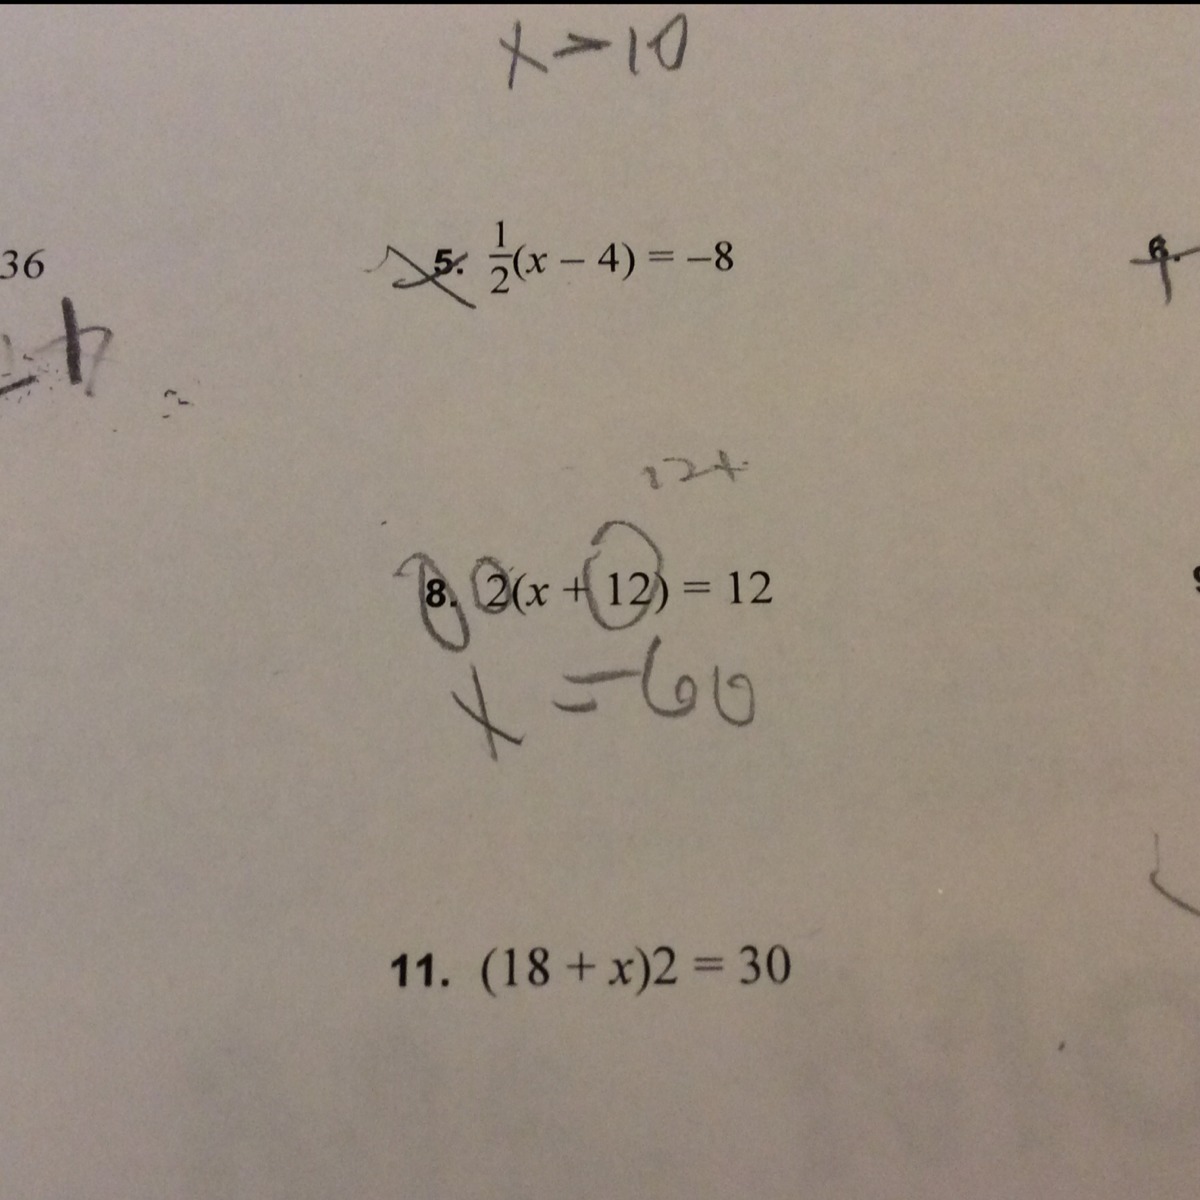 x > 10
36
5. \frac{1}{2}(x − 4) = −8
6.
12+
8. 2(x + 12) = 12
x = -60
11. (18 + x)2 = 30